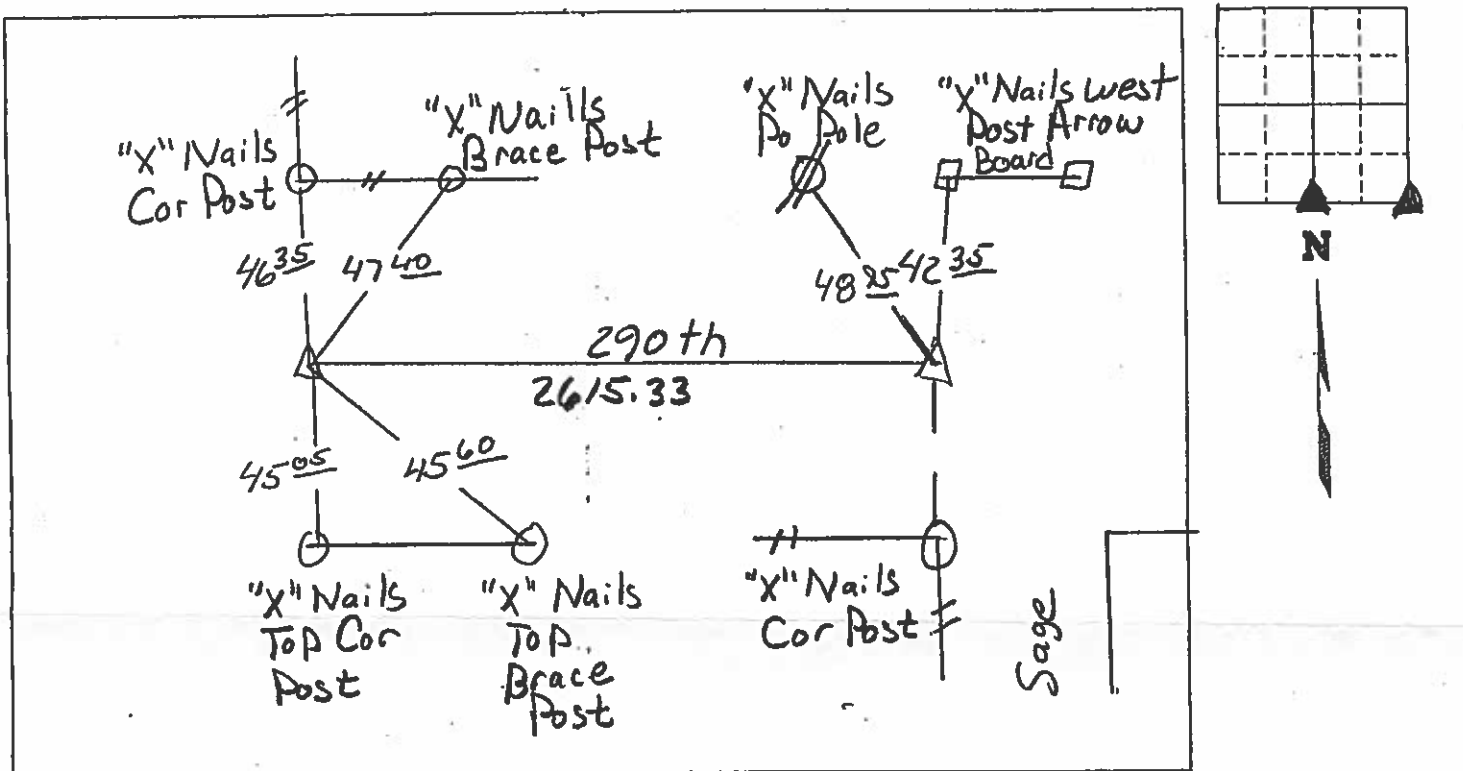 "X" Nails
Cor Post
"X" Naills
Brace Post
"X" Nails
Po Pole
"X" Nails west
Post Arrow
Board
N
46 35
47 40
48 25
42 35
290th
2615.33
45 05
45 60
"X" Nails
Top Cor
Post
"X" Nails
Top
Brace
Post
"X" Nails
Cor Post
Sage